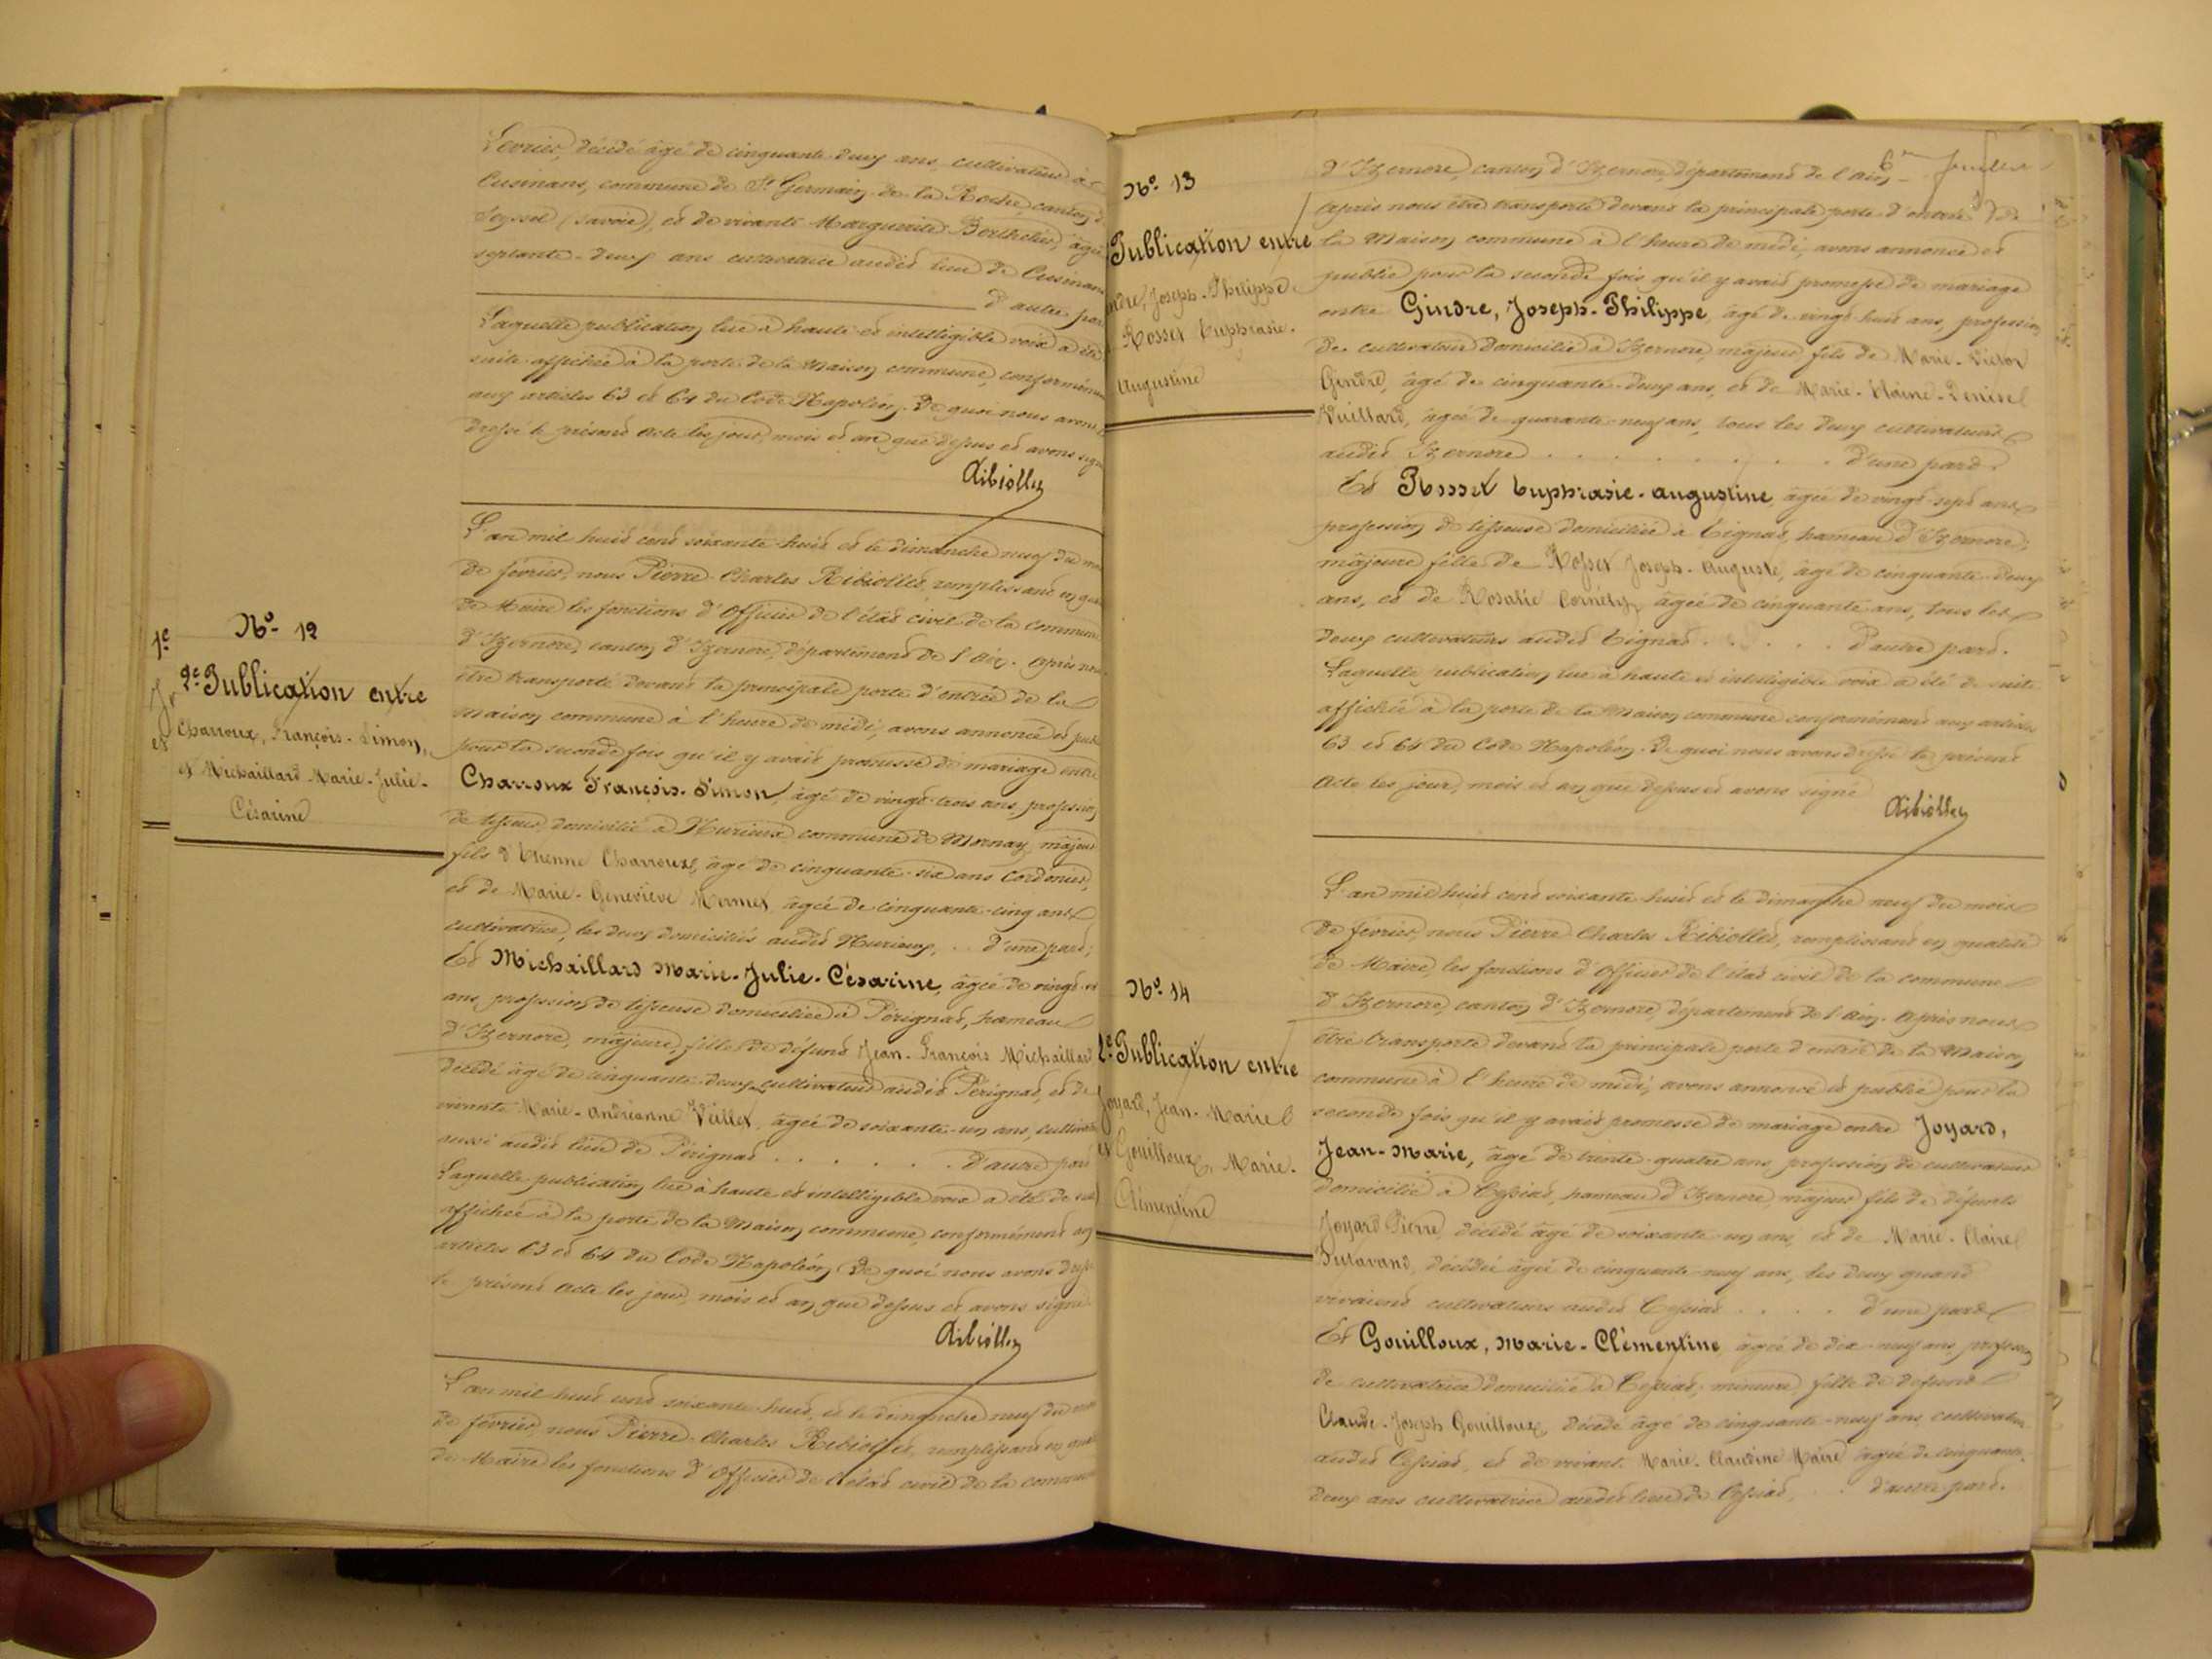 Février, décédé âgé de cinquante-deux ans, cultivateur à
Cusinans, commune de St Germain de la Roche, canton d
Seyssel (Savoie), et de vivante Marguerite Berthelier, âgée
septante-deux ans cultivatrice audit lieu de Cusinans
d'autre par
Laquelle publication lue à haute et intelligible voix a été
suite affichée à la porte de la Maison commune, conformémen
aux articles 63 et 64 du Code Napoléon. De quoi nous avons
dressé le présent acte les jour, mois et an que dessus et avons sign
Ribiollet
1e
No. 12
2e Publication entre
Charroux, François-Simon,
et Michaillard Marie-Julie-
Césarine
L'an mil huit cent soixante-huit et le dimanche neuf du mo
de février, nous Pierre-Charles Ribiollet, remplissant en qua
de Maire les fonctions d'Officier de l'état civil de la commune
d'Izernore, canton d'Izernore, département de l'Ain. Après nous
être transporté devant la principale porte d'entrée de la
Maison commune à l'heure de midi, avons annoncé et pub
pour la seconde fois qu'il y avait promesse de mariage entre
Charroux François-Simon, âgé de vingt-trois ans, profession
de tisseur, domicilié à Nurieux, commune de Mornay, majeur
fils d'Etienne Charroux, âgé de cinquante-six ans Cordonier,
et de Marie-Geneviève Mermet, âgée de cinquante-cinq ans
cultivatrice, les deux domiciliés audit Nurieux, .. d'une part;
Et Michaillard Marie-Julie-Césarine, âgée de vingt-
ans, profession de tisseuse domiciliée à Pérignat, hameau
d'Izernore, majeure, fille de défunt Jean-François Michaillard
décédé âgé de cinquante-deux cultivateur audit Pérignat, et de
vivante Marie-Andréanne Veillet, âgée de soixante-un ans, cultivat
aussi audit lieu de Pérignat . . . . . . d'autre part
Laquelle publication lue à haute et intelligible voix a été de suit
affichée à la porte de la Maison commune, conformément aux
articles 63 et 64 du Code Napoléon. De quoi nous avons dress
le présent acte les jour, mois et an que dessus et avons signé
Ribiollet
L'an mil huit cent soixante-huit, et le dimanche neuf du moi
de février, nous Pierre-Charles Ribiollet, remplissant en qual
de Maire les fonctions d'Officier de l'état civil de la commun
6e feuillet
No. 13
Publication entre
ndre, Joseph-Philippe
Rosset Euphrasie-
Augustine
d'Izernore, canton d'Izernore, département de l'Ain
Après nous être transporté devant la principale porte d'entrée de
la Maison commune à l'heure de midi, avons annoncé et
publié pour la seconde fois qu'il y avait promesse de mariage
entre Gindre, Joseph-Philippe, âgé de vingt-huit ans, profession
de cultivateur domicilié à Izernore, majeur fils de Marie-Victor
Gindre, âgé de cinquante-deux ans, et de Marie-Denise
Vuillard, âgée de quarante-neuf ans, tous les deux cultivateurs
audit Izernore . . . . . . . . . d'une part.
Et Rosset Euphrasie-Augustine, âgée de vingt-sept ans
profession de tisseuse domiciliée à Tignat, hameau d'Izernore,
majeure fille de Rosset Joseph-Auguste, âgé de cinquante-deux
ans, et de Rosalie Cornéty, âgée de cinquante ans, tous les
deux cultivateurs audit Tignat . . . . . d'autre part.
Laquelle publication lue à haute et intelligible voix a été de suite
affichée à la porte de la Maison commune conformément aux articles
63 et 64 du Code Napoléon. De quoi nous avons dressé le présent
acte les jour, mois et an que dessus et avons signé
Ribiollet
No. 14
2e Publication entre
Joyard, Jean-Marie
et Gouilloux, Marie-
Clémentine
L'an mil huit cent soixante-huit et le dimanche neuf du mois
de février, nous Pierre-Charles Ribiollet, remplissant en qualité
de Maire, les fonctions d'Officier de l'état civil de la commune
d'Izernore, canton d'Izernore, département de l'Ain. Après nous
être transporté devant la principale porte d'entrée de la Maison
commune à l'heure de midi, avons annoncé et publié pour la
seconde fois qu'il y avait promesse de mariage entre Joyard,
Jean-Marie, âgé de trente-quatre ans, profession de cultivateur
domicilié à Cessiat, hameau d'Izernore, majeur fils de défunts
Joyard Pierre, décédé âgé de soixante-un ans, et de Marie-Claire
Dutavand, décédée âgée de cinquante-neuf ans, les deux quand
vivaient cultivateurs audit Cessiat . . . . d'une part
Et Gouilloux, Marie-Clémentine âgée de dix-neuf ans, profession
de cultivatrice domiciliée à Cessiat, mineure, fille de défunt
Claude-Joseph Gouilloux, décédé âgé de cinquante-neuf ans, cultivateur
audit Cessiat, et de vivante Marie-Claudine Maire âgée de cinquante-
deux ans cultivatrice audit lieu de Cessiat . . . d'autre part.